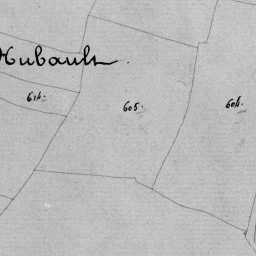 Hubault.
614.
605.
604.